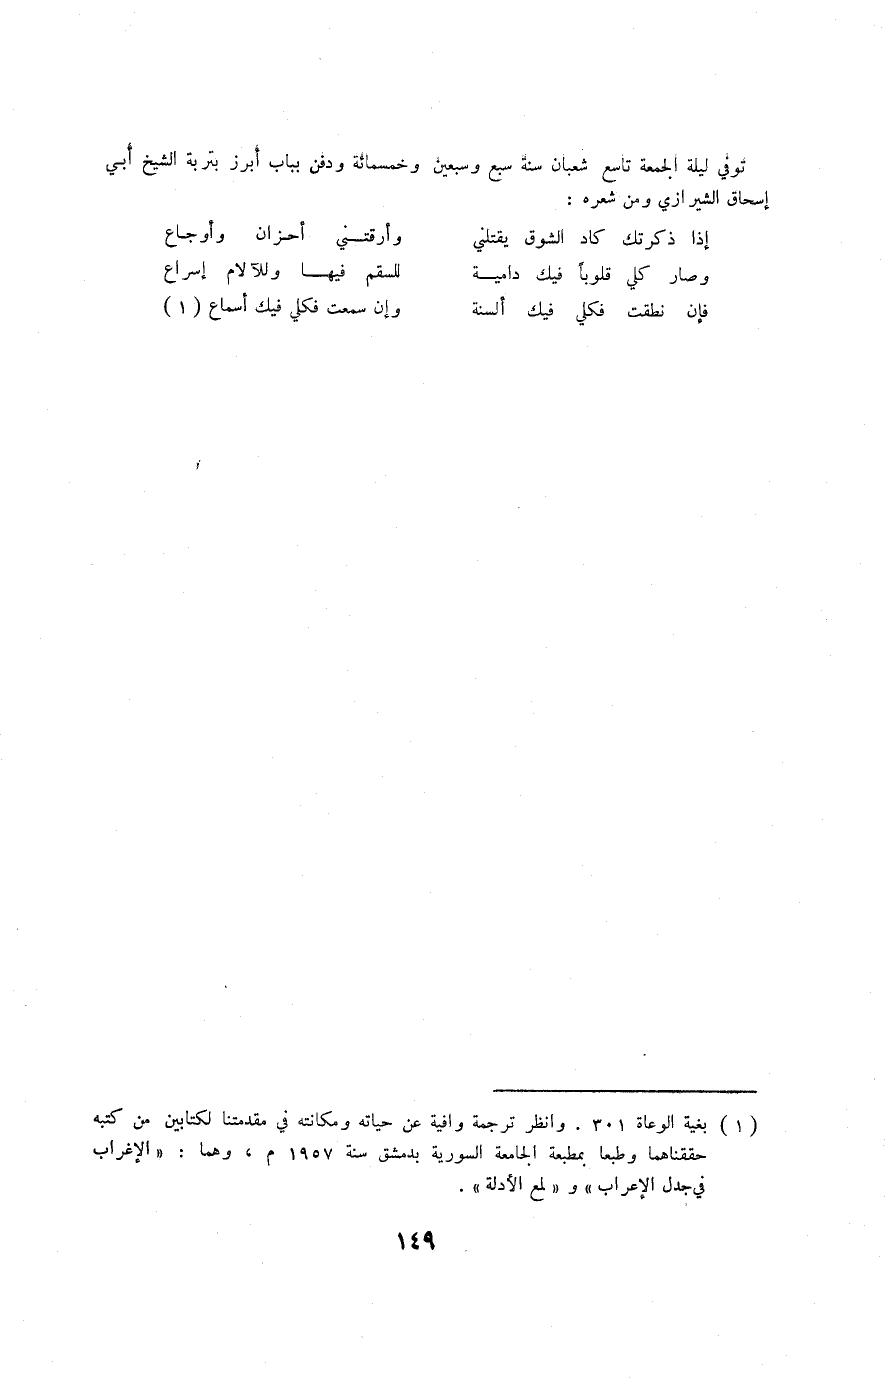 توفي ليلة الجمعة تاسع شعبان سنة سبع وسبعين وخمسمائة ودفن بباب أبرز بتربة الشيخ أبي
إسحاق الشيرازي ومن شعره :
إذا ذكرتك كاد الشوق يقتلني وأرقتـــني أحـزان وأوجـاع
وصار كلي قلوباً فيك داميـــة للسقم فيهـــا وللآلام إسراع
فإن نطقت فكلي فيك ألسنة وإن سمعت فكلي فيك أسماع (١)
(١) بغية الوعاة ٣٠١ . وانظر ترجمة وافية عن حياته ومكانته في مقدمتنا لكتابين من كتبه
حققناهما وطبعا بمطبعة الجامعة السورية بدمشق سنة ١٩٥٧ م ، وهما : « الإغراب
في جدل الإعراب » و « لمع الأدلة » .
١٤٩